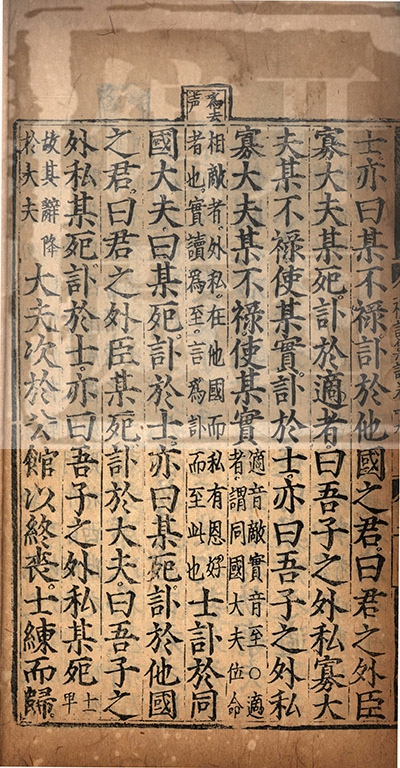 為去
声
士亦曰某不祿訃於他國之君。曰君之外臣
寡大夫某死。訃於適者曰吾子之外私寡大
夫某不祿使某實。訃於士。亦曰吾子之外私
寡大夫某不祿。使某實適音敵實音至○適者謂同國大夫位命
相敵者。外私。在他國而私有恩好者也實讀爲至。言爲訃而至此也士訃於同
國大夫。曰某死。訃於士。亦曰某死。訃於他國
之君。曰君之外臣某死。訃於大夫。曰吾子之
外私某死。訃於士。亦曰吾子之外私某死士卑
故其辭降於大夫大夫次於公館以終喪。士練而歸。